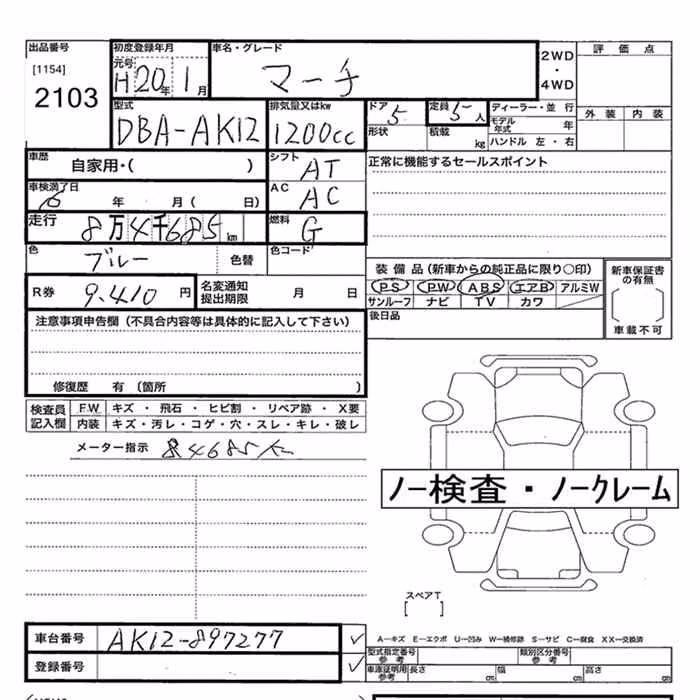 出品番号 初度登録年月 車名・グレード 2WD・4WD 評価点
[1154] 元号 H20年 1月 マーチ
2103
型式 排気量又はkw ドア 5 定員 5人 ディーラー・並行 外装 内装
DBA-AK12 1200cc 形状 積載 kg モデル年式 年
ハンドル 左・右
車歴 自家用・( ) シフト AT 正常に機能するセールスポイント
車検満了日 年 月( 日) AC AC
走行 8万4千685km 燃料 G
色 ブルー 色替 色コード
装備品(新車からの純正品に限り○印) 新車保証書の有無
R券 9,410円 名変通知提出期限 月 日 PS PW ABS エアB アルミW
サンルーフ ナビ TV カワ
後日品 車載不可
注意事項申告欄(不具合内容等は具体的に記入して下さい)
修復歴 有(箇所 )
検査員記入欄 F.W キズ・飛石・ヒビ割・リペア跡・X要
内装 キズ・汚レ・コゲ・穴・スレ・キレ・破レ
メーター指示 84685
ノー検査・ノークレーム
スペアT
[ ]
車台番号 AK12-897277 ✓ A-キズ E-エクボ U-凹み W-補修跡 S-サビ C-腐食 XX-交換済
登録番号 ✓ 型式指定番号 参考 類別区分番号 参考
車庫証明用 参考 長さ cm 幅 cm 高さ cm